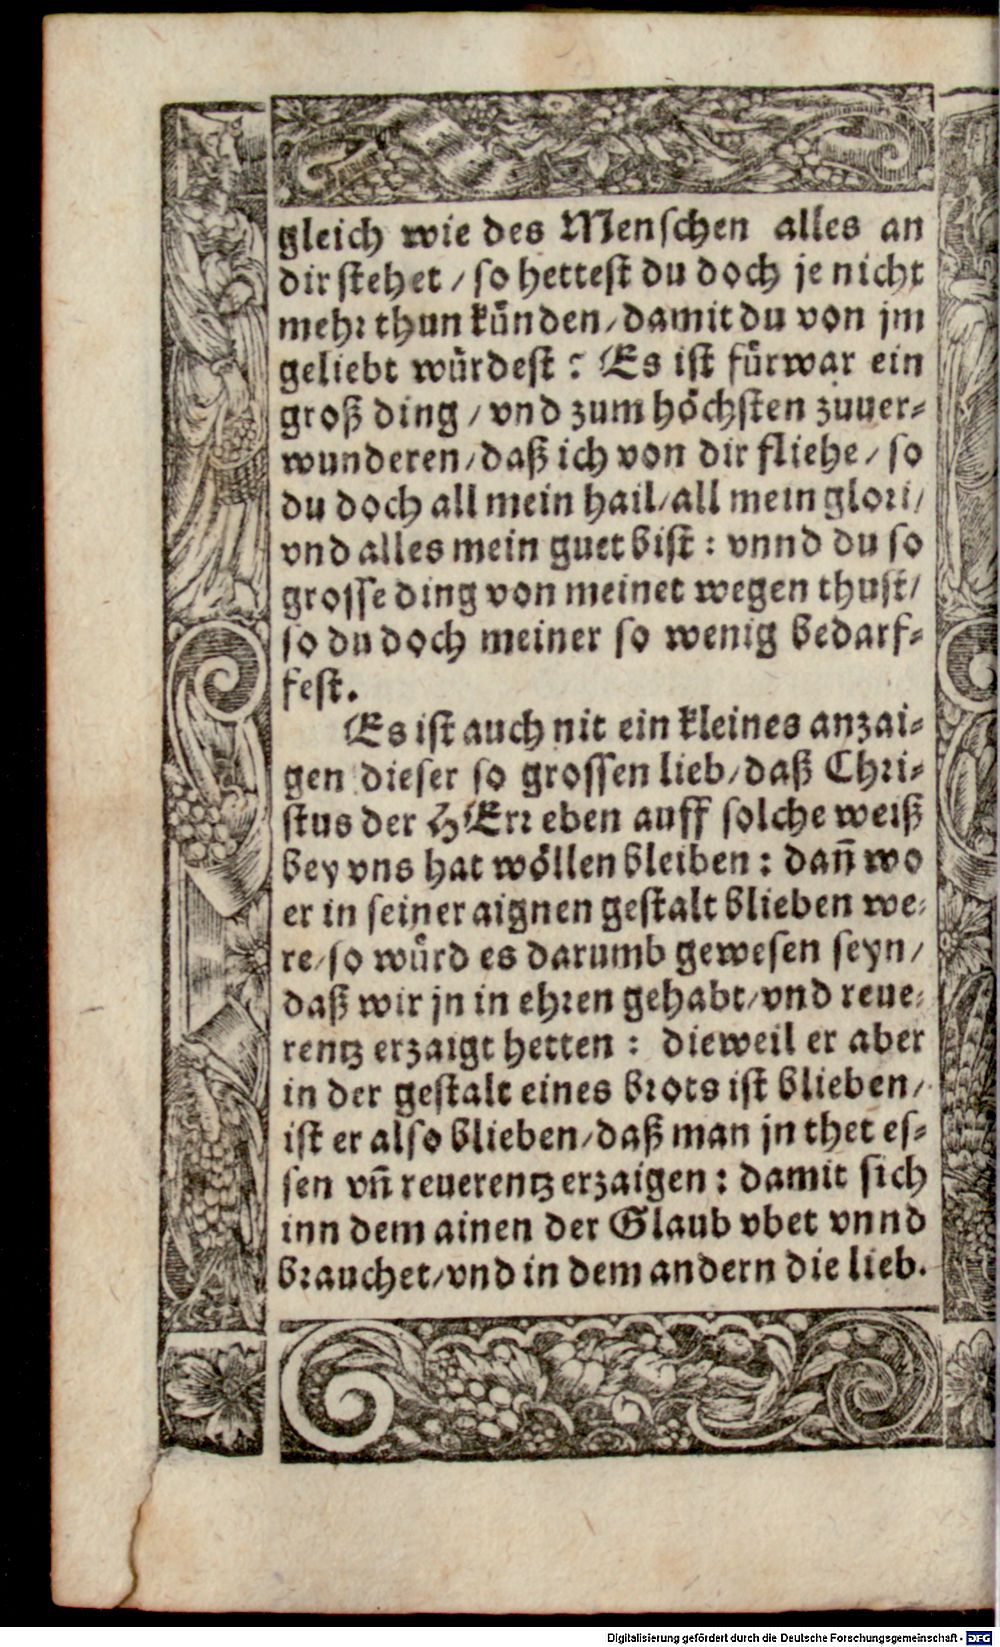 gleich wie des Menschen alles an
dir stehet / so hettest du doch je nicht
mehr thun künden / damit du von jm
geliebt würdest? Es ist fürwar ein
groß ding / vnd zum höchsten zuuer⸗
wunderen / daß ich von dir fliehe / so
du doch all mein hail / all mein glori /
vnd alles mein guet bist : vnnd du so
grosse ding von meinet wegen thust /
so du doch meiner so wenig bedarf⸗
fest.
Es ist auch nit ein kleines anzai⸗
gen dieser so grossen lieb / daß Chri⸗
stus der HErr eben auff solche weiß
bey vns hat wöllen bleiben : dañ wo
er in seiner aignen gestalt blieben we⸗
re / so würd es darumb gewesen seyn /
daß wir jn in ehren gehabt / vnd reue⸗
rentz erzaigt hetten : dieweil er aber
in der gestalt eines brots ist blieben /
ist er also blieben / daß man jn thet es⸗
sen vñ reuerentz erzaigen : damit sich
inn dem ainen der Glaub vbet vnnd
brauchet / vnd in dem andern die lieb.
Digitalisierung gefördert durch die Deutsche Forschungsgemeinschaft - DFG